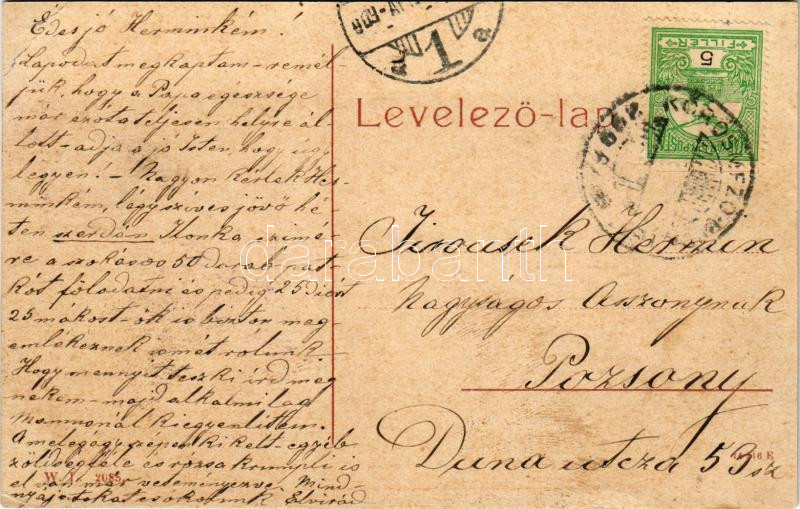 Édes jó Herminkém!
Lapodat megkaptam - remél-
jük, hogy a Papa egészsége
már azóta teljesen helyre ál-
lott - adja a jó Isten, hogy úgy
legyen! - Nagyon kérlek Her-
minkém, légy szíves jövő hé-
ten szerdán Ilonka czimé-
re a szokásos 50 darab pat-
kót föladatni és pedig 25 dióst
25 mákost - ők is biztos meg-
emlékeznek ismét rolunk.
Hogy mennyit tesz ki írd meg
nekem - majd alkalmilag
Mammánál kiegyenlítem.
A melegágy szépen kikelt - egyéb
zöldségféle és rózsakrumpli is
el van már veteményezve. Mind-
nyájatokat csókolunk Elvirád
W. L. 2085.
1
a
Levelező-lap
FILLÉR
5
KŐRÖSMEZŐ
darabanth
Jirousek Hermin
Nagyságos Asszonynak
Pozsony
Duna utcza 59 sz